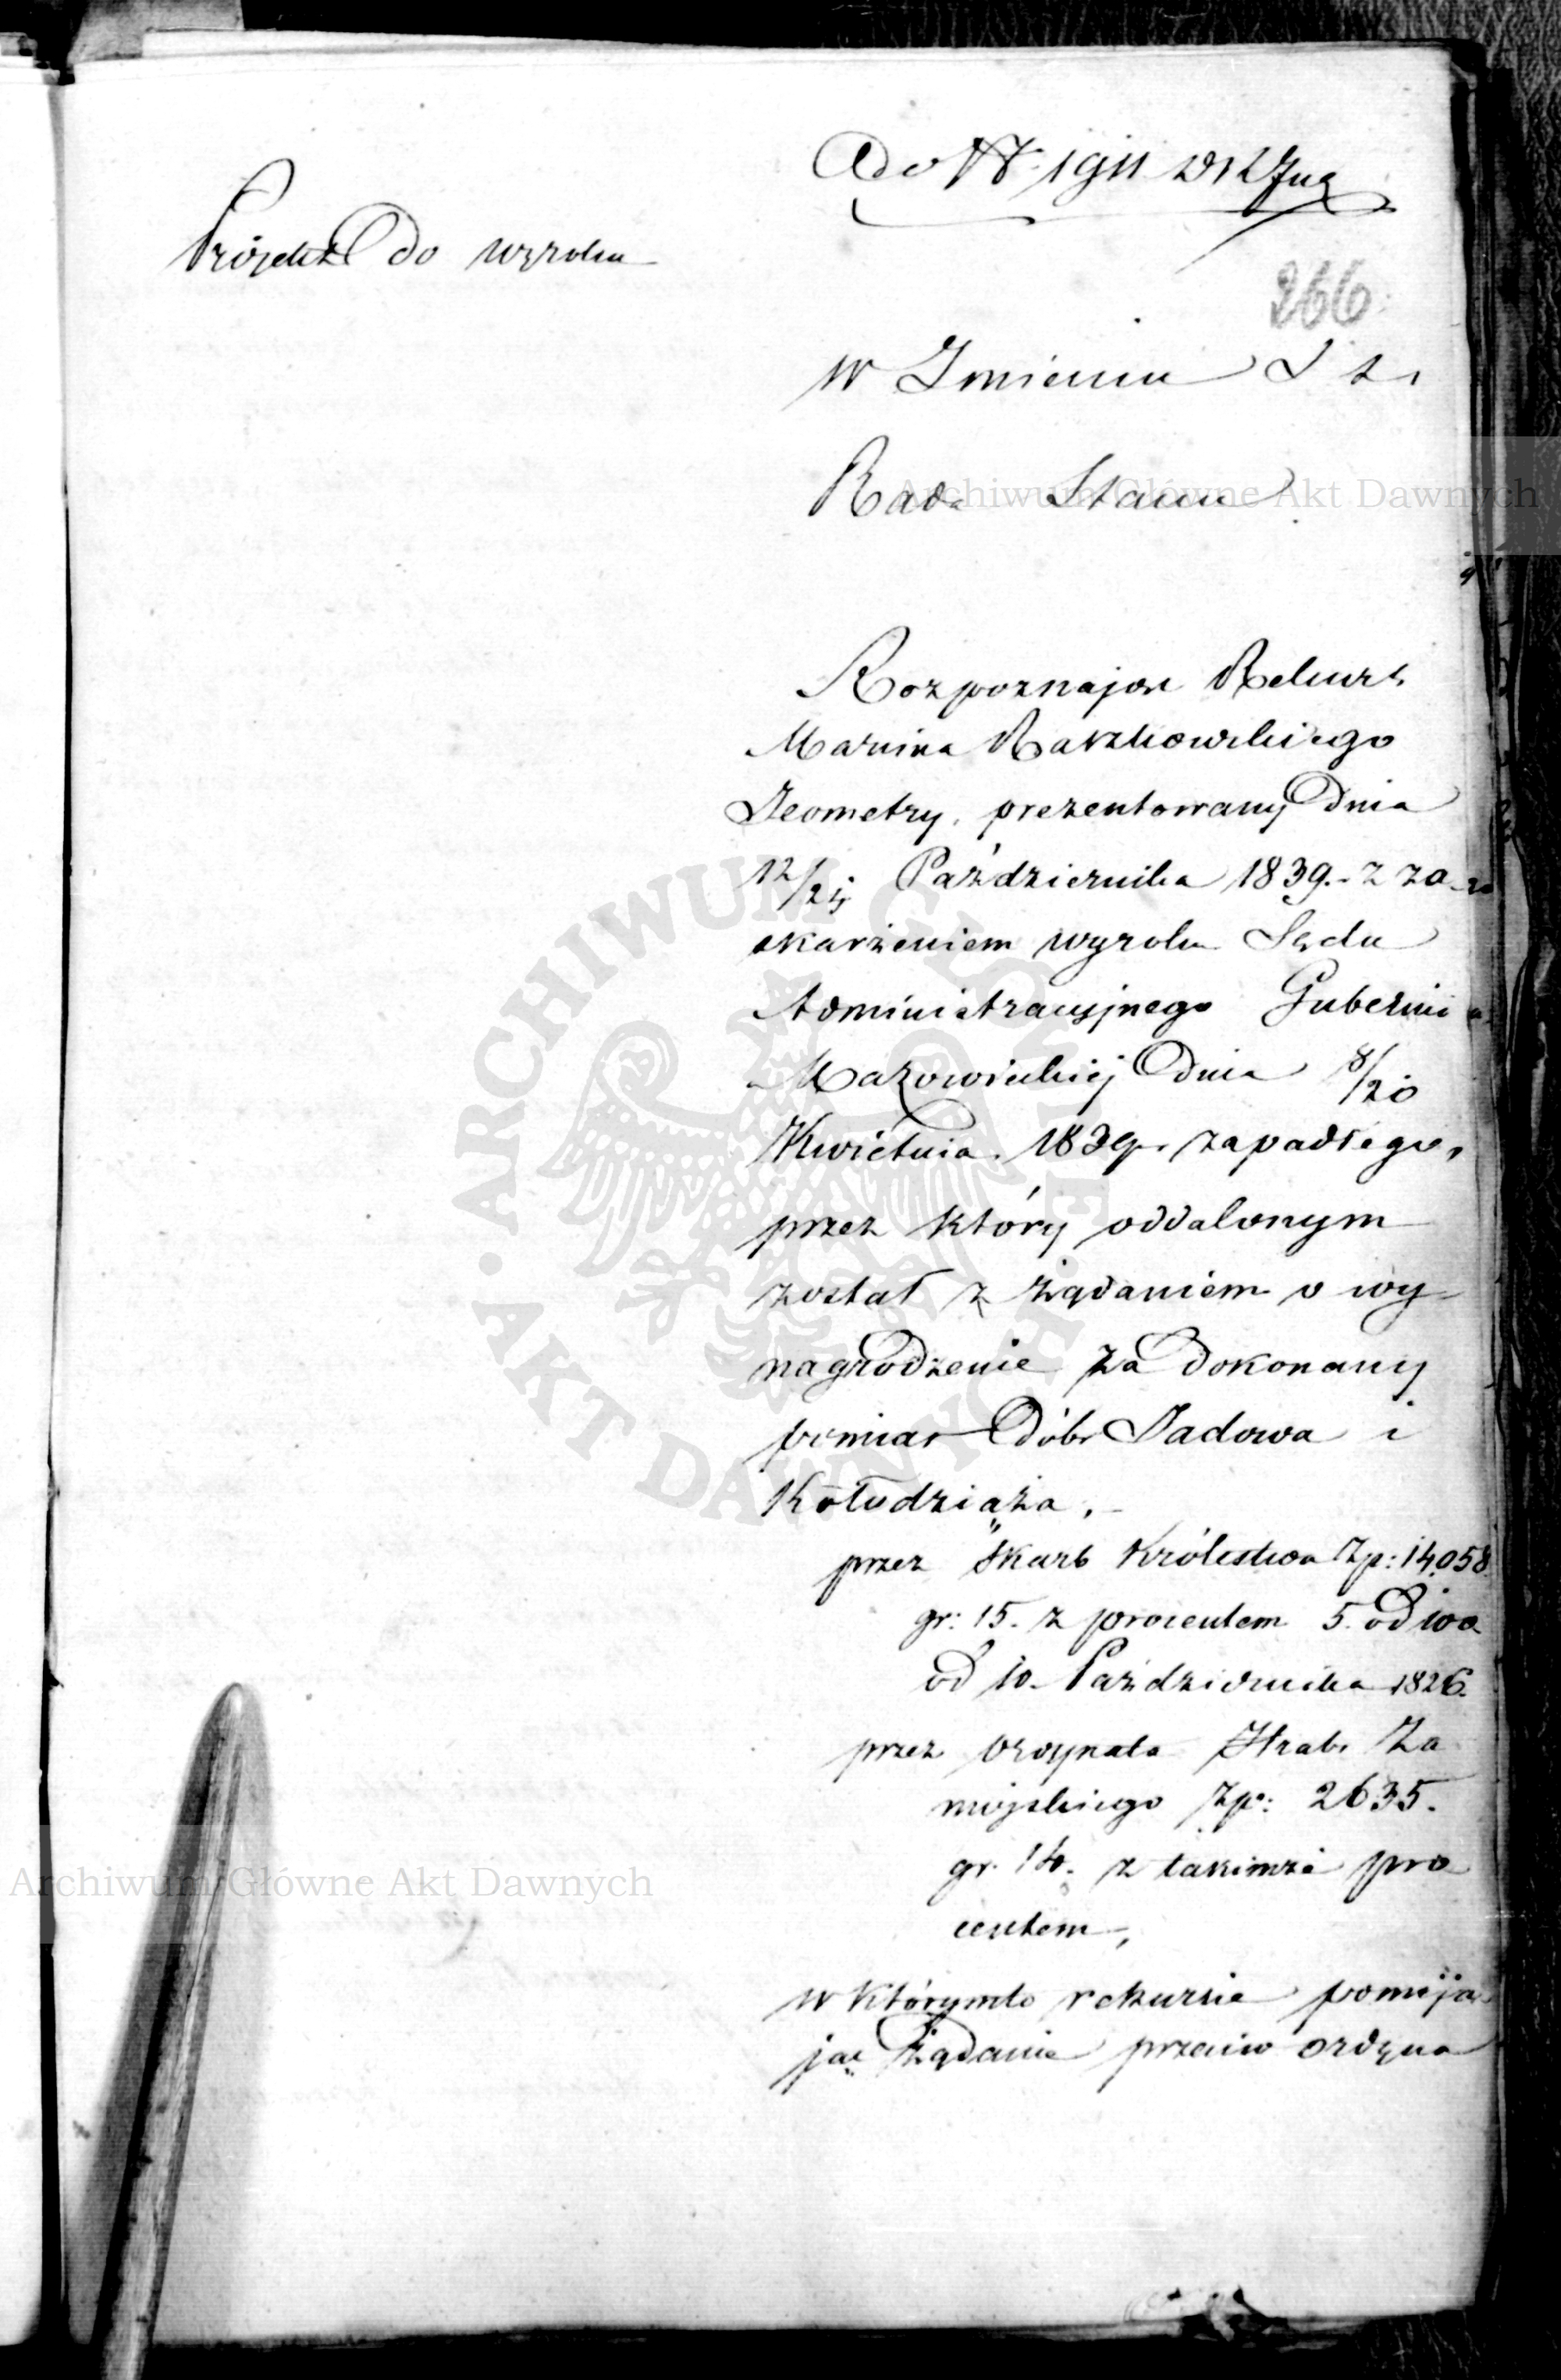 Projekt do wyroku
Ad N 1911
266
w Imieniu
Rada Stanu
Rozpoznając Rekurs
Marcina Raszkowskiego
Jeometry, prezentowany Dnia
12/24 Października 1839.- z za-
skarżeniem wyroku Sądu
Administracyjnego Gubernii
Mazowieckiej Dnia 8/20
Kwietnia 1839 r. zapadłego,
przez który oddalonym
został z żądaniem o wy-
nagrodzenie za dokonany
pomiar Dóbr Jadowa i
Kołodziąża.-
przez Skarb Królestwa Zp: 14,058
gr: 15. z procentem 5. od 100
od 10. Października 1826.
przez Ordynata Hrab. Za
mojskiego Zp: 2635.
gr. 14. z takimże pro
centem,
w którymto rekursie pomija
jąc żądanie przeciw Ordyna
Archiwum Główne Akt Dawnych
Archiwum Główne Akt Dawnych
ARCHIWUM GŁÓWNE AKT DAWNYCH